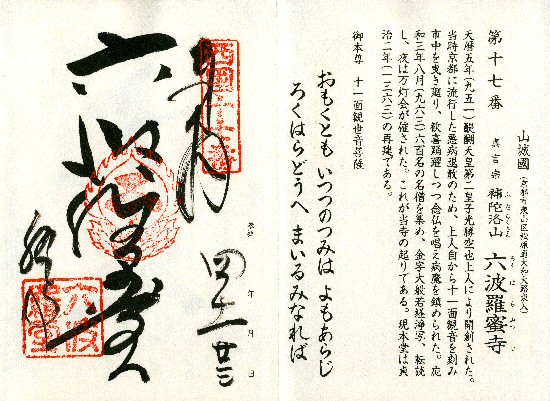 第十七番
山城國(京都市東山区松原通大和大路東入)
真言宗 補陀洛山 六波羅蜜寺
ふだらくさん
ろくはらみつじ
天暦五年(九五一)醍醐天皇第二皇子光勝空也上人により開創された。
当時京都に流行した悪病退散のため、上人自から十一面観音を刻み
市中を曳き廻り、歓喜踊躍しつつ念仏を唱え病魔を鎮められた。応
和三年八月(九六三)六百名の名僧を集め、金字大般若経浄写、転読
し、夜は万灯会が催された。これが当寺の起りである。現本堂は貞
治二年(一三六三)の再建である。
御本尊 十一面観世音菩薩
おもくとも いつつのつみは よもあらじ
ろくはらどうへ まいるみなれば
西國十七番
奉拝
四十 年 二 月 廿三 日
六波羅蜜寺